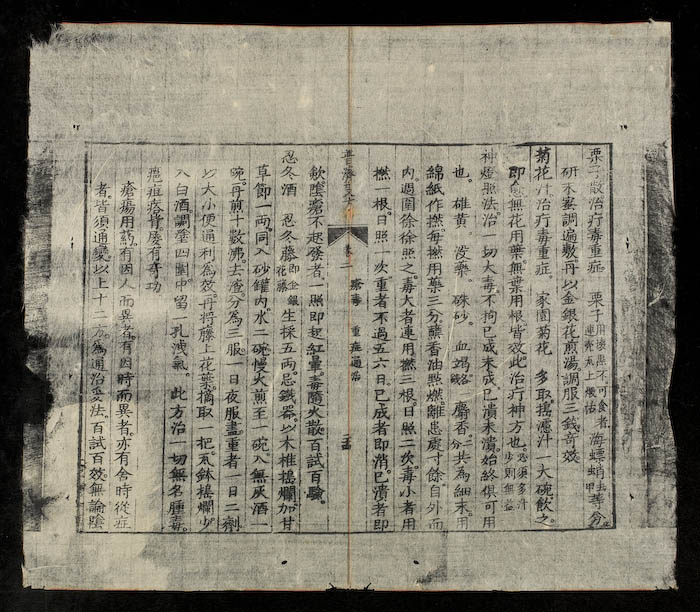 栗子散治疔毒重症 栗子用壞黑不可食者連壳瓦上煅枯 海螵蛸去甲等分
研末蜜調遍敷丹以金銀花煎湯調服三錢奇效
菊花汁治疔毒重症 家園菊花 多取搗濾汁一大碗飲之
即愈無花用葉無葉用根皆效此治疔神方也必須多汁少則無益
神燈照法治一切大毒不拘已成未成已潰未潰始終俱可用
也 雄黃 没藥 硃砂 血竭各錢 麝香分共為細末用
綿紙作撚每撚用藥三分蘸香油點燃離患處寸餘自外而
内週圍徐徐照之毒大者連用撚三根日照二次毒小者用
撚一根日照一次重者不過五六日已成者即消已潰者即
普濟 卷二 瘡毒 重症通治
斂陰瘡不起發者一照即起紅暈毒隨火散百試百驗
忍冬酒 忍冬藤即金銀花藤 生採五兩忌鐵器以木椎搥爛加甘
草節一兩同入砂罐内水二碗慢火煎至一碗入無灰酒一
碗再煎十數沸去渣分為三服一日夜服盡重者一日二劑
以大小便通利為效再將藤上花葉摘取一把瓦鉢搗爛少
入白酒調塗四圍中留一孔洩氣 此方治一切無名腫毒
癰疽疼骨屡有奇功
瘡瘍用藥有因人而異者有因時而異者亦有舍時從症
者皆須通變以上十二方為通治妥法百試百效無論陰